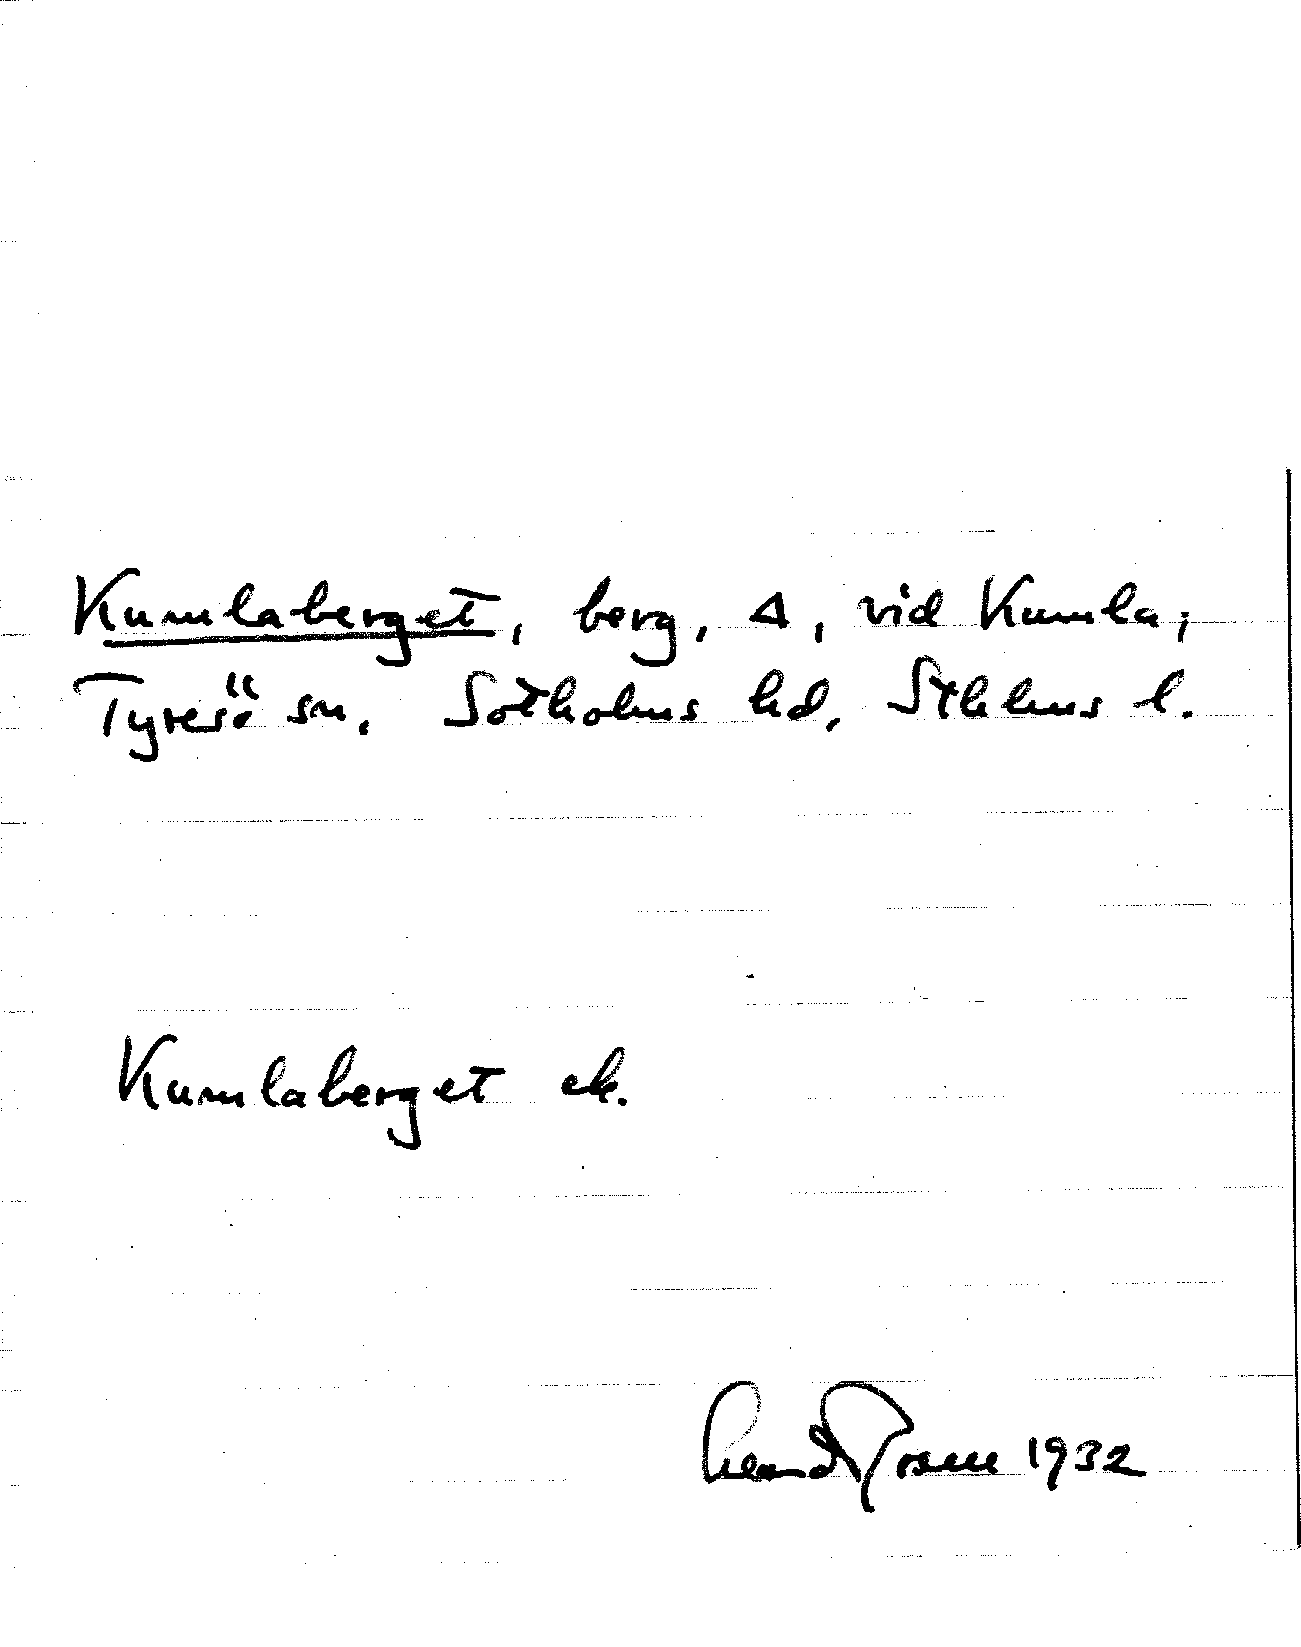 Kumlaberget, berg, Δ, vid Kumla;
Tyresö sn, Sotholms hd, Sthlms l.
Kumlaberget ek.
1932